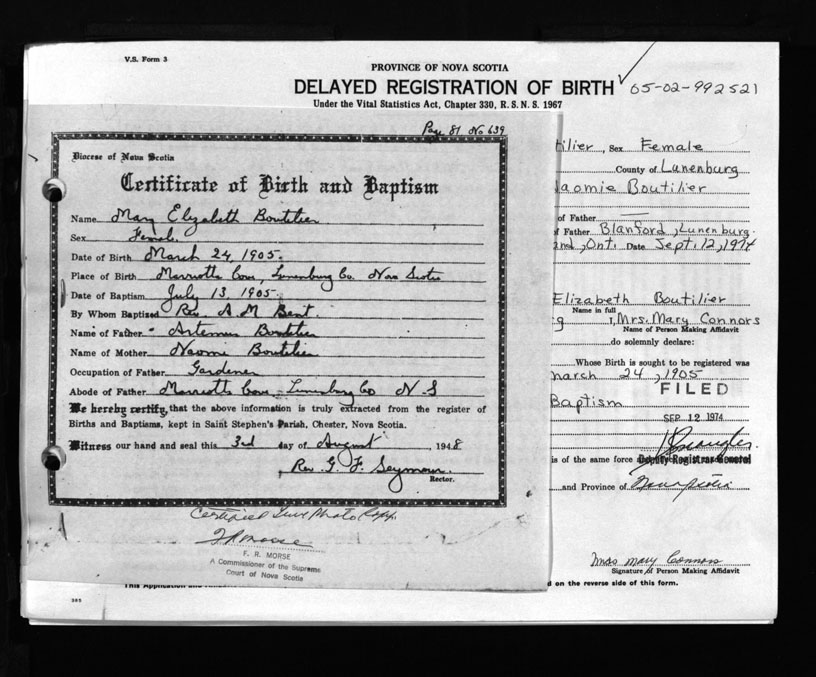 V.S. Form 3
PROVINCE OF NOVA SCOTIA
DELAYED REGISTRATION OF BIRTH 05-02-992521
Under the Vital Statistics Act, Chapter 330, R.S.N.S. 1967
Page 81 No 639
Diocese of Nova Scotia
Certificate of Birth and Baptism
Name Mary Elizabeth Boutilier
Sex Female
Date of Birth March 24, 1905.
Place of Birth Marriotts Cove, Lunenburg Co. Nova Scotia
Date of Baptism July 13, 1905.
By Whom Baptized Rev. A. M. Bent.
Name of Father Artemus Boutilier
Name of Mother Naomi Boutilier
Occupation of Father Gardener
Abode of Father Marriotts Cove Lunenburg Co N S
We hereby certify, that the above information is truly extracted from the register of
Births and Baptisms, kept in Saint Stephen's Parish, Chester, Nova Scotia.
Witness our hand and seal this 3rd day of August, 1948
Rev. G. F. Seymour.
Rector.
Certified True Photo Copy
F R Morse
F. R. MORSE
A Commissioner of the Supreme
Court of Nova Scotia
tilier, Sex Female
County of Lunenburg
Naomie Boutilier
of Father —
f Father Blanford, Lunenburg.
and, Ont. Date Sept. 12, 1974
Elizabeth Boutilier
Name in full
g I, Mrs. Mary Connors
Name of Person Making Affidavit
do solemnly declare:
Whose Birth is sought to be registered was
march 24, 1905
FILED
Baptism
SEP 12 1974
is of the same force
Deputy Registrar General
and Province of Nova Scotia
Mrs Mary Connors
Signature of Person Making Affidavit
This Application and
d on the reverse side of this form.
305